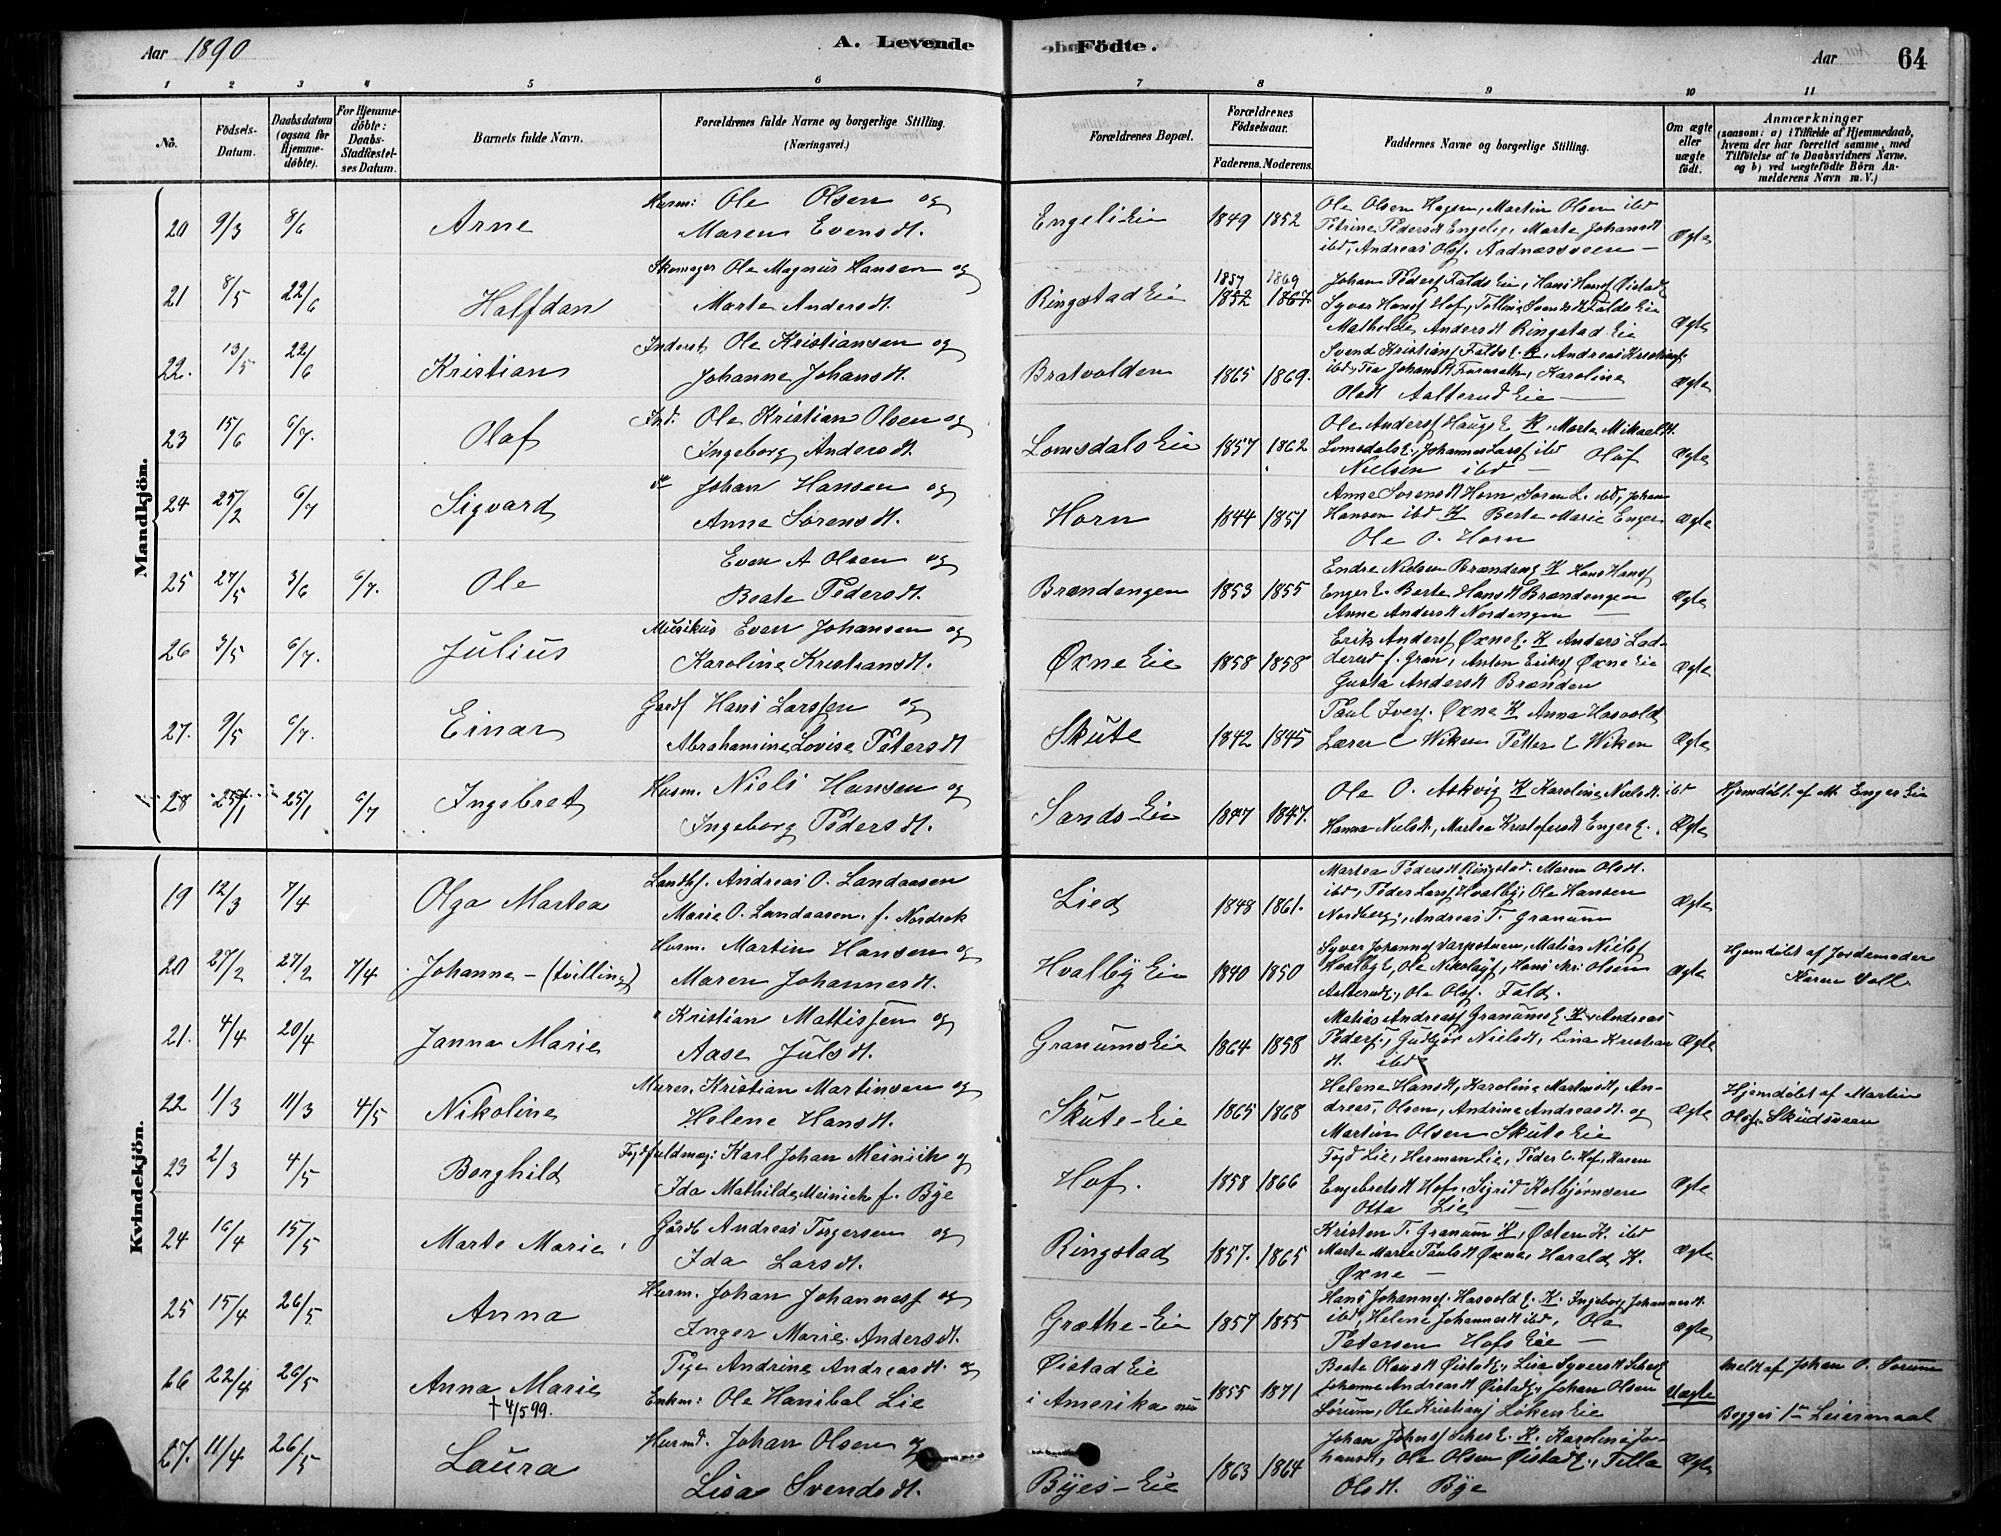 Aar 1890 A. Levende
Fødte. Aar 64
1 2 3 4 5 6 7 8 9 10 11
No.
Födsels-Datum.
Daabsdatum (ogsaa for Hjemmedöbte).
For Hjemmedöbte: Daabs-Stadfæstelses Datum.
Barnets fulde Navn.
Forældrenes fulde Navne og borgerlige Stilling. (Næringsvei.)
Forældrenes Bopæl.
Forældrenes Födselsaar.
Faderens. Moderens.
Faddernes Navne og borgerlige Stilling.
Om ægte eller uægte födt.
Anmærkninger
(saasom: a) i Tilfælde af Hjemmedaab, hvem der har forrettet samme, med Tilföielse af to Daabsvidners Navne, og b) ved uægtefödte Börn Anmelderens Navn m. V.)
Mandkjön.
20 9/3 8/6 Arne Husm: Ole Olsen og Maren Evensdt. Engeli Eie 1849 1852 Ole Olsen Hagen, Martin Olsen ibd
Petrine Pedersdt Engelie, Marte Johansdt
ibd, Andreas Olsf. Aadnæssveen — Ægte
21 8/5 22/6 Halfdan Skomager Ole Magnus Hansen og Marte Andersdt. Ringstad Eie 1857 1869 1852 1867 Johan Pedersf Falds Eie, Hans Hansf Øistad
Syver Hansf Hof, Svendsdt Falds Eie
Mathilde Andersdt Ringstad Eie Ægte
22. 13/5 22/6 Kristian Inderst Ole Kristiansen og Johanne Johansdt. Bratvolden 1865 1869. Svend Kristiansf Falds E. K, Andreas Kristiansf.
ibd, Tea Johansdt Karoline
Olsdt Aalterud Eie — Ægte
23 15/6 6/7. Olaf Ind. Ole Kristian Olsen og Ingeborg Andersdt. Lomsdals Eie 1857 1862 Ole Andersf Haugs E K, Marte Mikaelsdt.
Lomsdals E., Johannes Larsf ibd Oluf
Nielsen ibd — Ægte
24 25/2 6/7 Sigvard do Johan Hansen og Anne Sørensdt. Horn 1844 1851 Anne Sørensdt Horn, Søren L. ibd, Johan
Hansen ibd K Berte Marie Enger
Ole O. Horn Ægte
25 27/5 3/6 6/7. Ole Even A Olsen og Beate Pedersdt. Brændengen 1853 1855 Endre Nielsen Brændeng K Hans Hansf
Enger E. Berte Hansdt Brændengen
Anne Andersdt Nordengen — Ægte
26 3/5 6/7. Julius Musikus Even Johansen og Karoline Kristiansdt. Øxne Eie 1858 1858 Erik Andersf Øxne E. K Anders Lad-
derud f. Gran, Anton Eriksf Øxne Eie
Gusta Andersdt Brænden Ægte
27. 9/5 6/7. Einar Gaardf Hans Larssen og Abrahamine Lovise Petersdt Skute 1842 1845 Paul Iversf. Øxne K Anna Hasvold
Lærer C Wiken Petter C Wiken Ægte
28 25/1 25/1 6/7 Ingebret Husm. Niels Hansen og Ingeborg Pedersdt. Sands-Eie 1847 1847. Ole O. Askvig K Karoline Nielsdt. ibd
Hanna Nielsdt., Martea Kristofersdt Enger E. Ægte Hjemdøbt. af M. Enger Eie
Kvindekjön.
19 12/3 7/4 Olga Martea Landhf. Andreas O. Landaasen
Marie O. Landaasen. f. Nordrok Lied 1848 1861. Martea Pedersdt Ringstad. Maren Olsdt.
ibd, Peder Larsf Hvalby, Ole Hansen
Nordberg, Andreas T. Granum Ægte
20 27/2 27/2 7/4 Johanne – (tvilling) Husm. Martin Hansen og Maren Johannesdt. Hvalby Eie 1840 1850 Syver Johannesf Matias Nielsf
Hvalby E, Ole Nikolaysf, Hans Olsen
Aalterud, Ole Olsf. Fald. Ægte Hjemdøbt af Jordemoder
Karen Voll.
21. 4/4 20/4 Janna Marie " Kristian Mattissen og Aase Julsdt. Granums Eie 1864 1858 Matias Andreasf Granums E. K, Andreas
Pedersf, Gudbjør Nielsdt, Lina Kristians
dt. ibd Ægte
22 1/3 11/3 4/5 Nikoline Murer. Kristian Martinsen og Helene Hansdt. Skute-Eie 1865 1868 Helene Hansdt, Karoline Martinsdt, An-
dreas Olsen, Andrine Andreasdt. og
Martin Olsen Skute Eie Ægte Hjemdøbt af Martin
Olsf. Skudsveen
23 2/3 4/5 Borghild Fogdfuldmæg: Karl Johan Meinich og
Ida Mathilde Meinich f. Bye Hof. 1858 1866 Fogd Lie, Herman Lie, Peder C. Hof, Karen
Engebretsdt Hof, Sigrid Kolbjørnsen
Otta Lie — Ægte
24 16/4 15/5 Marte Marie Gårdb Andreas Torgersen og Ida Larsdt. Ringstad 1857. 1865 Kristen T. Granum K, Østen K. ibd
Marte Marie Paulsdt Øxne, Harald K.
Øxne — Ægte
25 15/4 26/5 Anna Husm. Johan Johannesf og Inger Marie Andersdt. Græthe-Eie 1857 1855 Hans Johannesf. Hasvold E. K. Ingeborg Johannesdt.
ibd, Helene Johannesdt ibd, Ole
Petersen Hofs Eie — Ægte
26 22/4 26/5 Anna Marie
† 4/5 99. Pige Andrine Andreasdt. og
Enkm: Ole Hanibal Lie Øistad Eie
i Amerika nu 1855 1871 Beate Olausdt Øistad, Lisa Syversdt
Johanne Andreasdt Øistad, Johan Olsen
Sørum, Ole Kristiansf Løken Eie Uægte Meldt af Johan O. Sørum
Begges 1ste Leiermaal
27. 11/4 26/5 Laura Husmd. Johan Olsen og Lisa Svendsdt. Byes-Eie 1863 1864 Johan E. K. Karoline Jo-
hansdt, Ole Olsen Øistad,
Olsdt. Bye Ægte